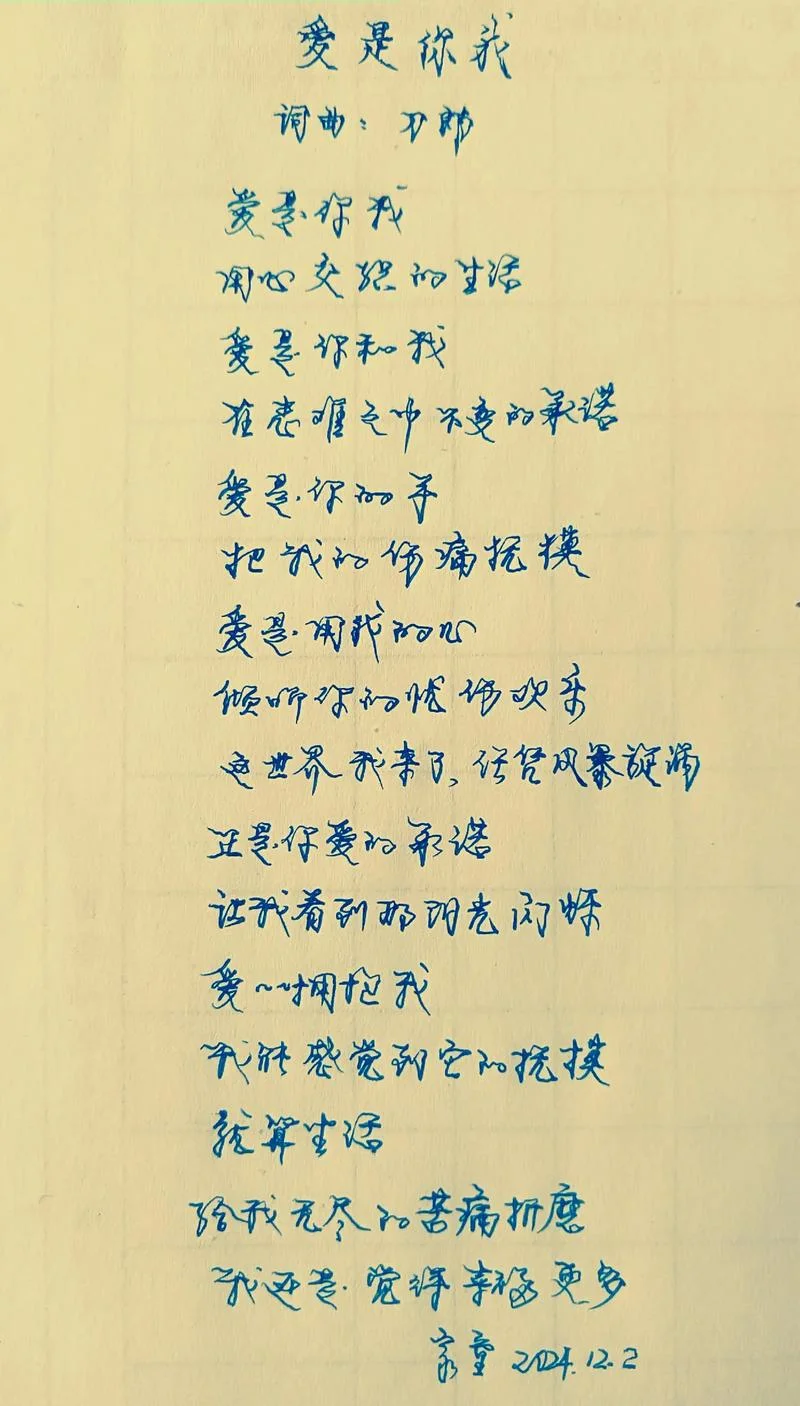 愛是你我
词曲：刀郎
爱是你我
用心交织的生活
爱是你和我
在患难之中不变的承诺
爱是你的手
把我的伤痛抚摸
爱是用我的心
倾听你的忧伤欢乐
这世界我来了，任凭风暴旋涡
正是你爱的承诺
让我看到那阳光闪烁
爱～～拥抱我
我能感觉到它的抚摸
就算生活
给我无尽的苦痛折磨
我还是觉得幸福更多
家童 2024.12.2